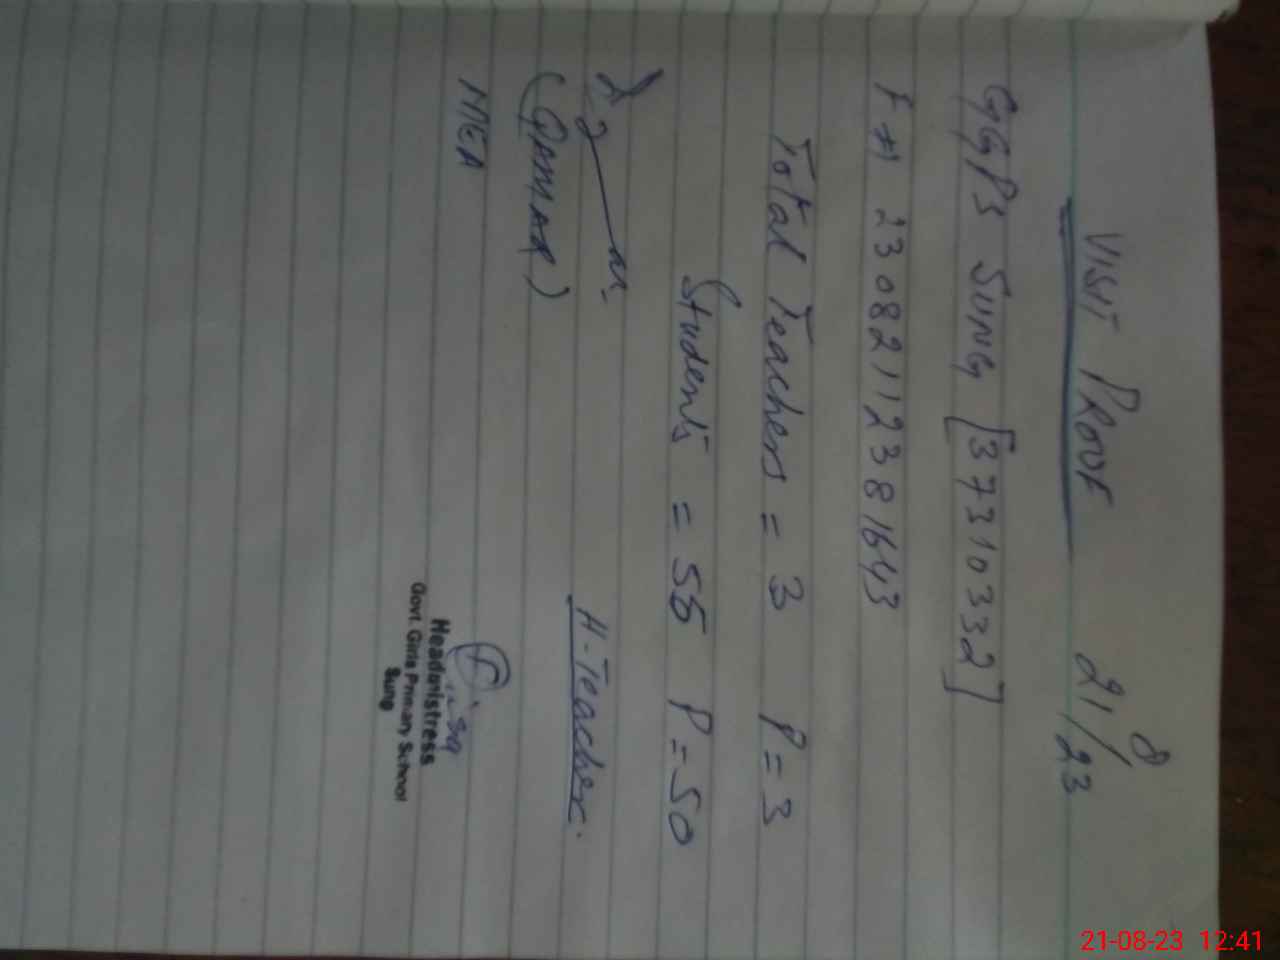 VISIT PROOF 21/8/23
GGPS SUNG [37310332]
F# 23082112381643
Total Teachers = 3 P = 3
Students = 55 P = 50
H-Teacher.
(QAMAR)
MEA
Headmistress
Govt. Girls Primary School
Sung
21-08-23 12:41